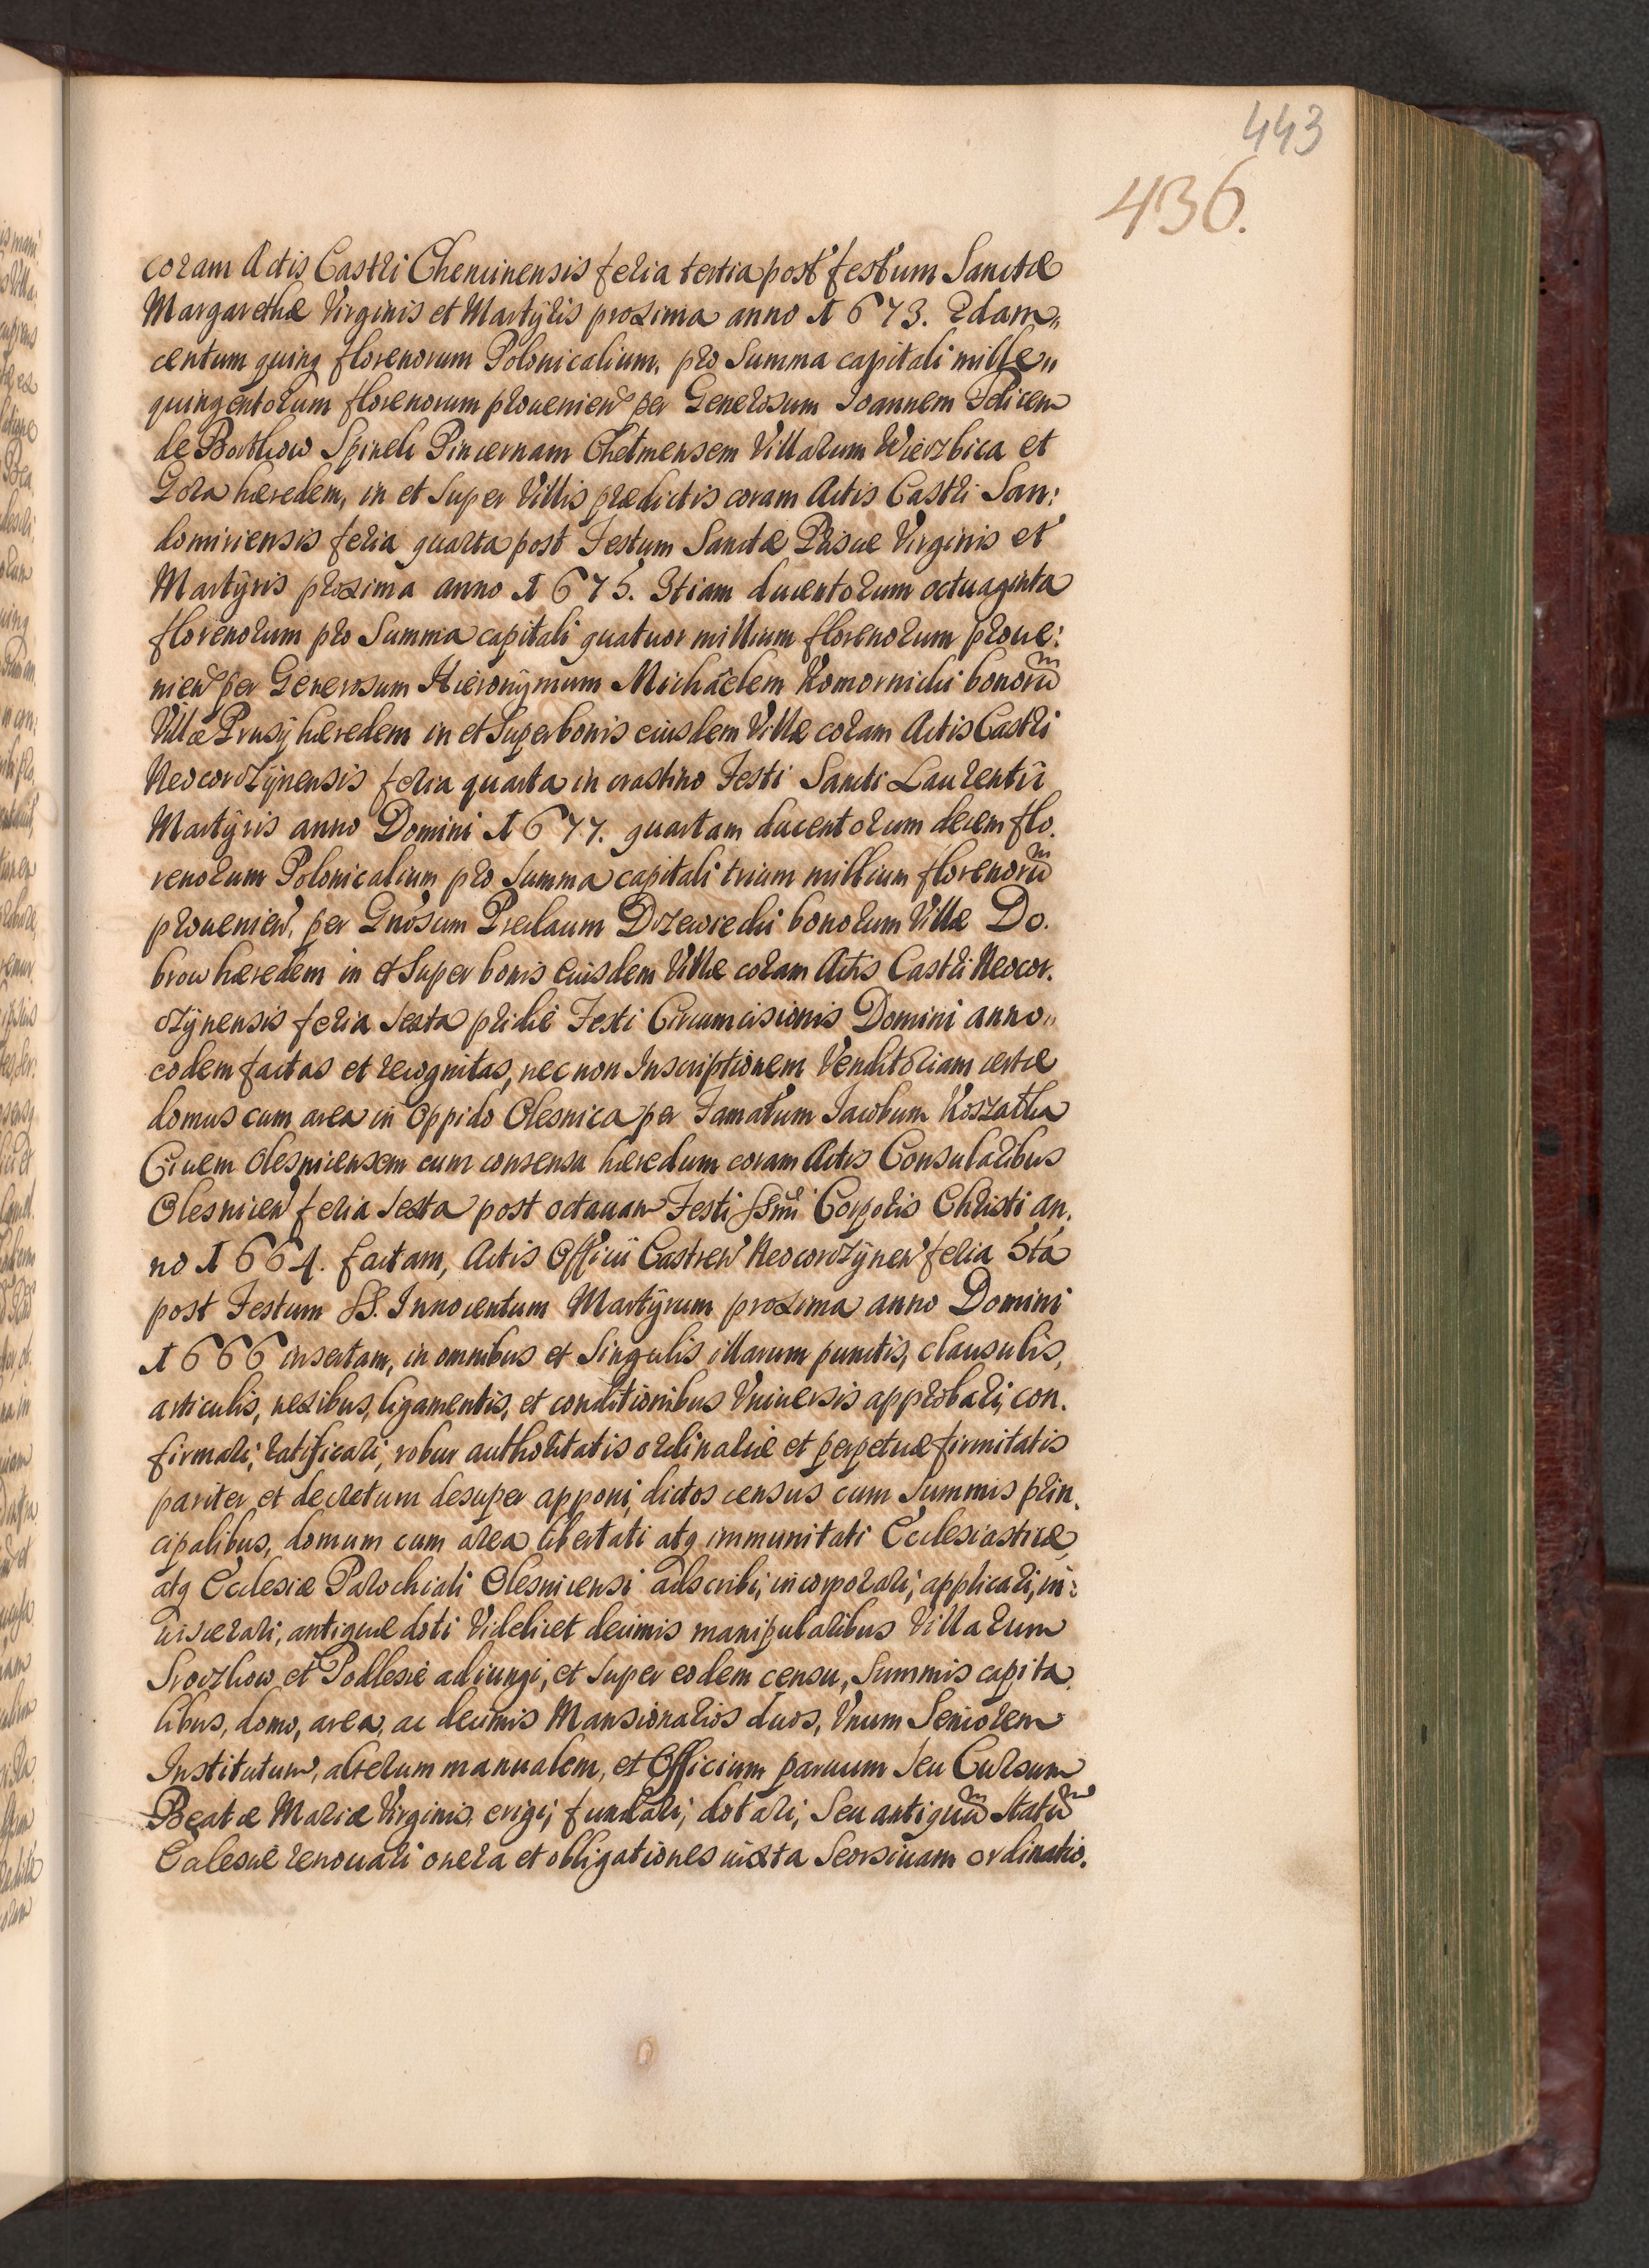 443
436.
coram Actis Castri Chencinensis feria tertia post festum Sanctæ
Margarethæ Virginis et Martÿris proxima anno 1673. 2dam„
centum quinq florenorum Polonicalium, pro Summa capitali mille„
quingentorum florenorum prouenien per Generosum Joannem Felicem
de Bortkow Spinek Pincernam Chelmensem Villarum Wierzbica et
Gora hæredem, in et Super Villis prædictis coram Actis Castri San:
domiriensis feria quarta post Festum Sanctæ Priscæ Virginis et
Martÿris proxima anno 1675. 3tiam ducentorum octuaginta
florenorum pro Summa capitali quatuor millium florenorum proue:
nien per Generosum Hieronÿmum Michaëlem Komornicki bonorum
Villæ Prusÿ hæredem in et Super bonis eiusdem Villæ coram Actis Castri
Neocorczÿnensis feria quarta in crastino Festi Sancti Laurentii
Martÿris anno Domini 1677. quartam ducentorum decem flo.
renorum Polonicalium pro Summa capitali trium millium florenorum
prouenien, per Gnosum Preclaum Drzewiecki bonorum Villæ Do.
brow hæredem in et Super bonis eiusdem Villæ coram Actis Castri Neocor.
czÿnensis feria Sexta pridie Festi Circumcisionis Domini anno„
eodem factas et recognitas, nec non Inscriptionem Venditoriam certæ
domus cum area in Oppido Olesnica per Famatum Jacobum Koszatka
Ciuem Olesnicensem cum consensu hæredum coram Actis Consularibus
Olesnicen feria Sexta post octauam Festi SSmi Corporis Christi an.
no 1664. factam, Actis Officii Castren Neocorczÿnen feria 5ta
post Festum SS. Innocentum Martÿrum proxima anno Domini
1666 insertam, in omnibus et Singulis illarum punctis, clausulis,
articulis, nexibus, ligamentis, et conditionibus Vniuersis approbari, con.
firmari, ratificari, robur authoritatis ordinariæ et perpetuæ firmitatis
pariter et decretum desuper apponi, dictos census cum Summis prin.
cipalibus, domum cum area libertati atq immunitati Ecclesiasticæ,
atq Ecclesiæ Parochiali Olesnicensi adscribi, incorporari, applicari, in:
uiscerari, antiquæ doti Videlicet decimis manipularibus Villarum
Sroczkow et Podlesie adiungi, et Super eodem censu, Summis capita
libus, domo, area, ac decimis Mansionarios duos, Vnum Seniorem
Institutum, alterum manualem, et Officium paruum Seu Cursum
Beatæ Mariæ Virginis, erigi, fundari, dotari, Seu antiquum Statum
Eclesiæ renouari onera et obligationes iuxta Seorsiuam ordinatio.